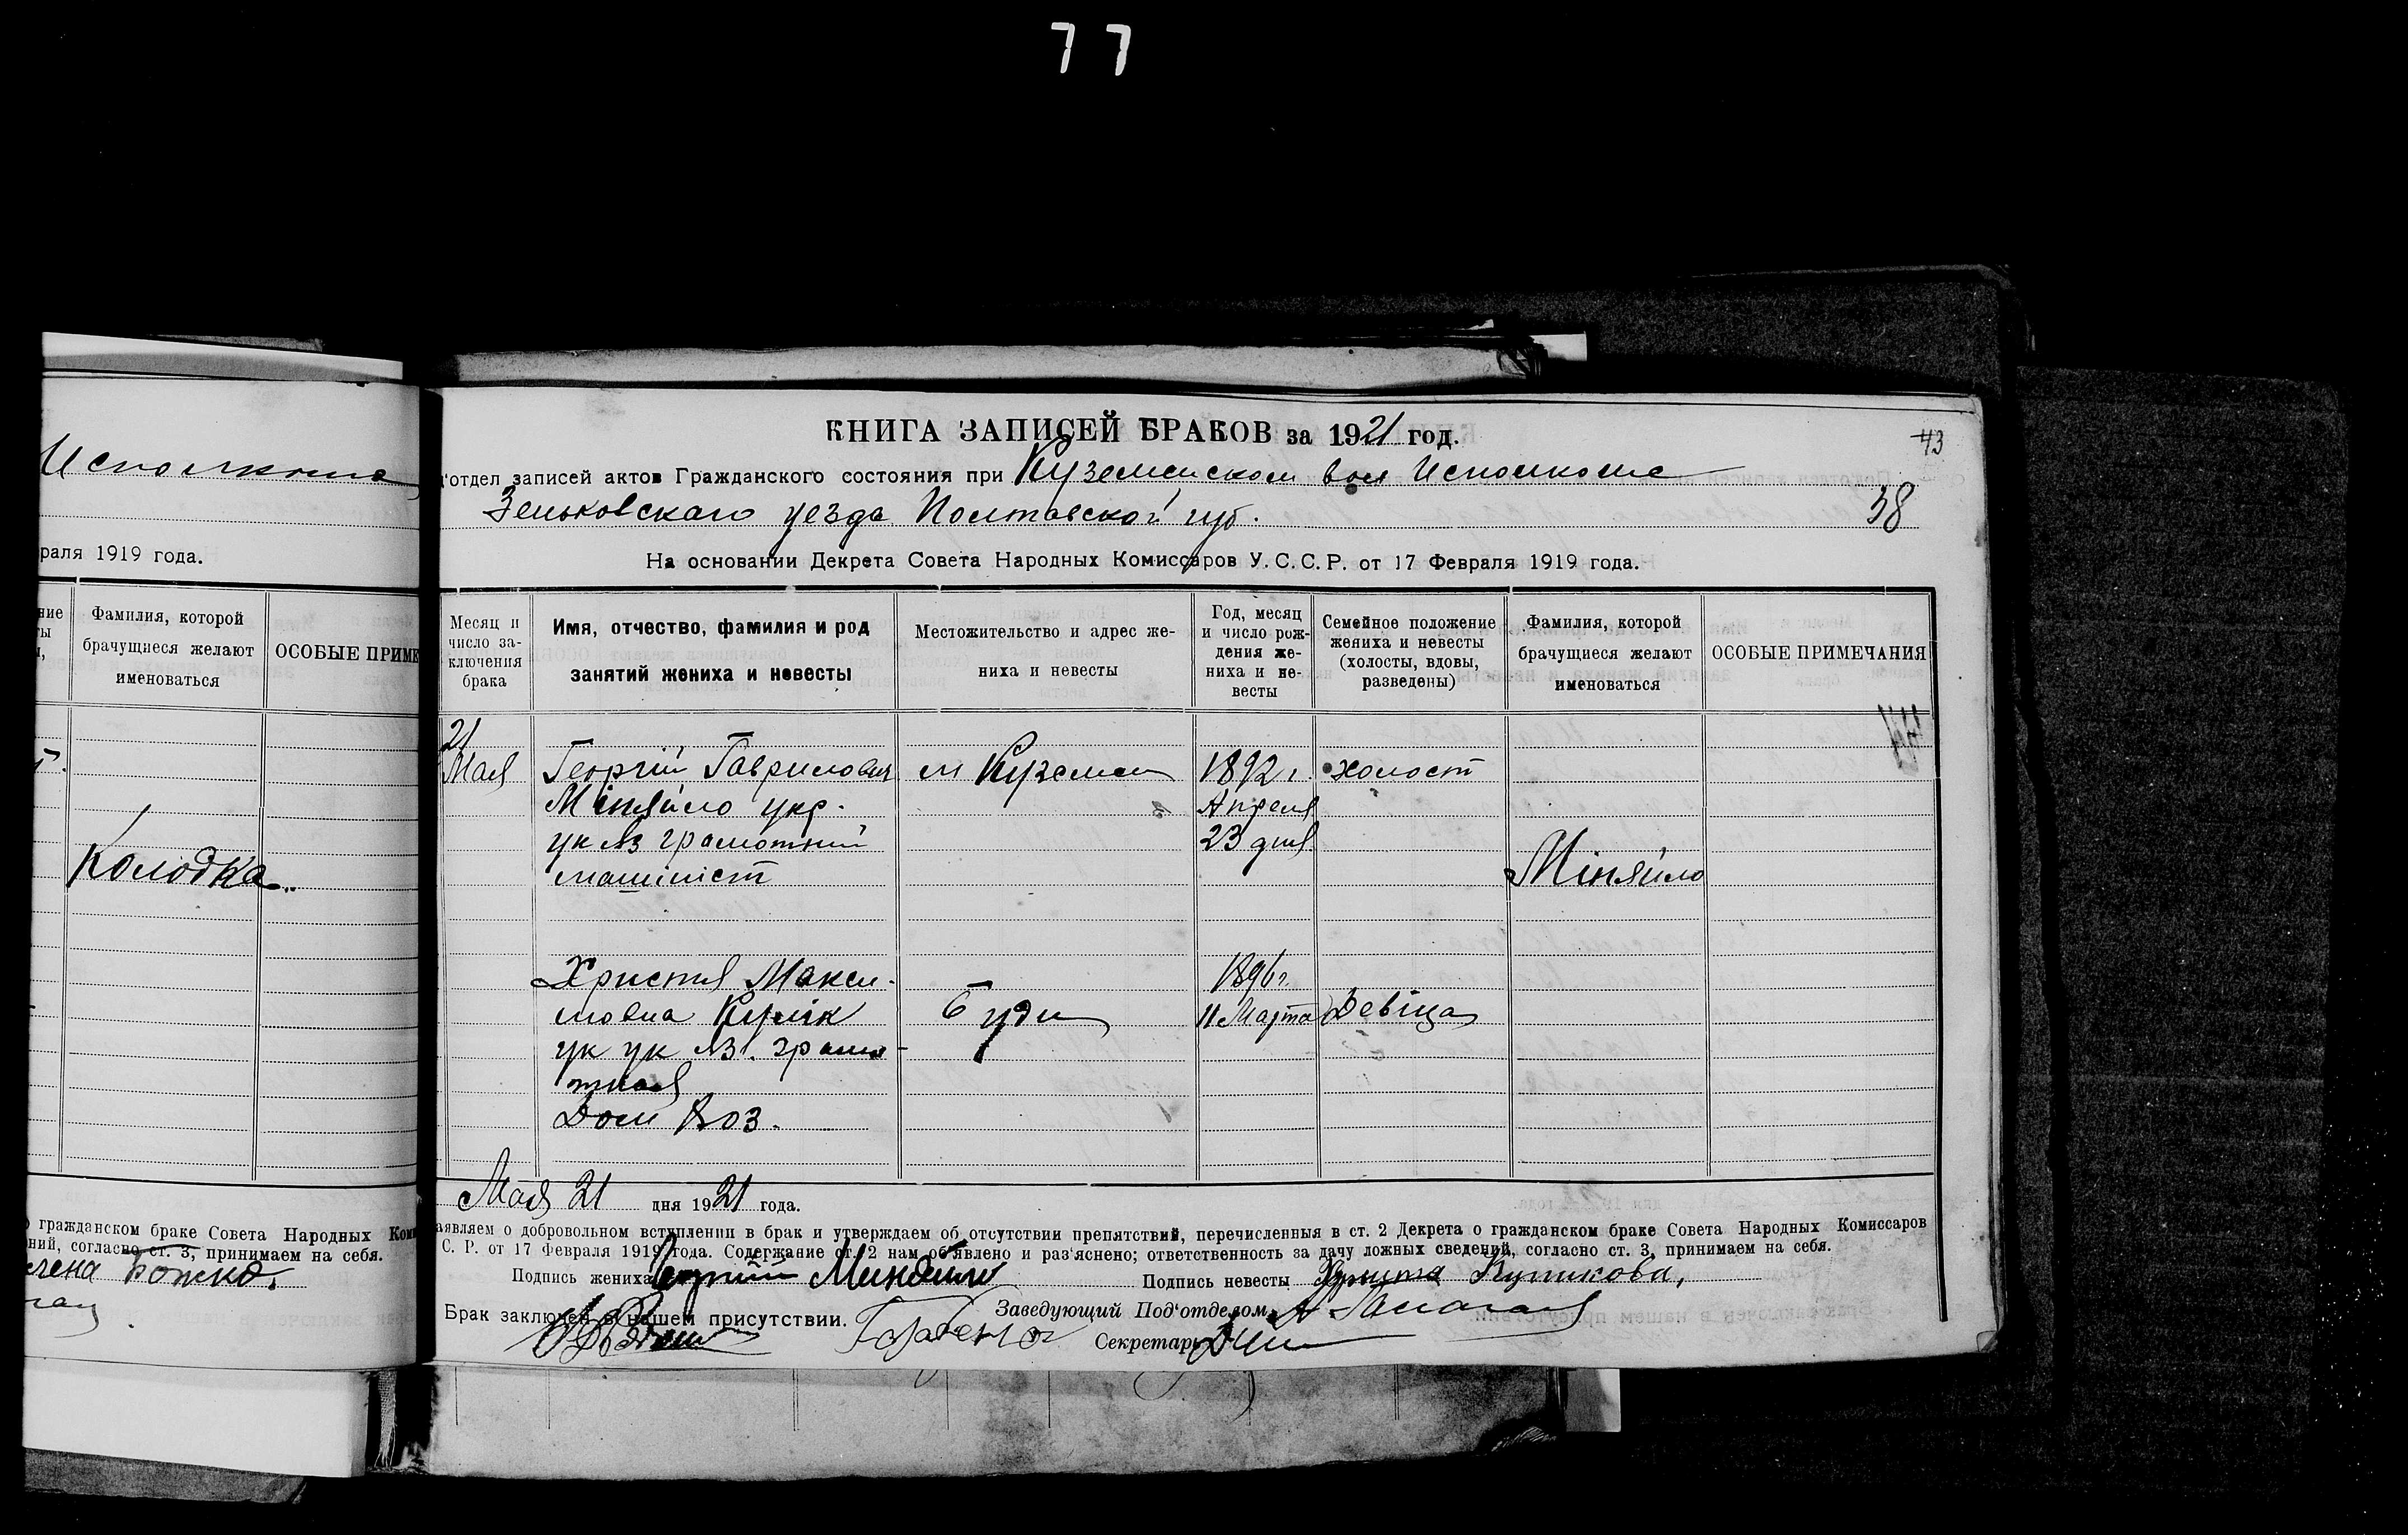 77
Исполкоме
раля 1919 года.
Фамилия, которой
брачущиеся желают
именоваться
ОСОБЫЕ ПРИМЕ
Колодка
о гражданском браке Совета Народных Ком
ний, согласно ст. 3, принимаем на себя.
лена Божко.
КНИГА ЗАПИСЕЙ БРАКОВ за 1921 год.
43
д'отдел записей актов Гражданского состояния при Куземенском вол Исполкоме
Зеньковскаго уезда Полтавской губ.
38
На основании Декрета Совета Народных Комиссаров У.С.С.Р. от 17 Февраля 1919 года.
Месяц и число заключения брака
Имя, отчество, фамилия и род занятий жениха и невесты
Местожительство и адрес жениха и невесты
Год, месяц и число рождения жениха и невесты
Семейное положение жениха и невесты (холосты, вдовы, разведены)
Фамилия, которой брачущиеся желают именоваться
ОСОБЫЕ ПРИМЕЧАНИЯ
21
Мая Георгій Гаврилович м Куземен 1892 г. холост
Міняйло укр. Апреля
ук яз грамотний 23 дня
машініст Міняйло
Христя Макси- 1896 г.
мовна Кулик Буди 11 Марта Девіца
ук ук яз. грамо-
тная
Дом Хоз.
Мая 21 дня 1921 года.
аявляем о добровольном вступлении в брак и утверждаем об отсутствии препятствий, перечисленныя в ст. 2 Декрета о гражданском браке Совета Народных Комиссаров
С. Р. от 17 Февраля 1919 года. Содержание ст. 2 нам об'явлено и раз'яснено; ответственность за дачу ложных сведений, согласно ст. 3, принимаем на себя.
Подпись жениха Георгий Миняйло Подпись невесты Христя Куликова,
Брак заключен в нашем присутствии. Заведующий Под'отделом
Секретарь